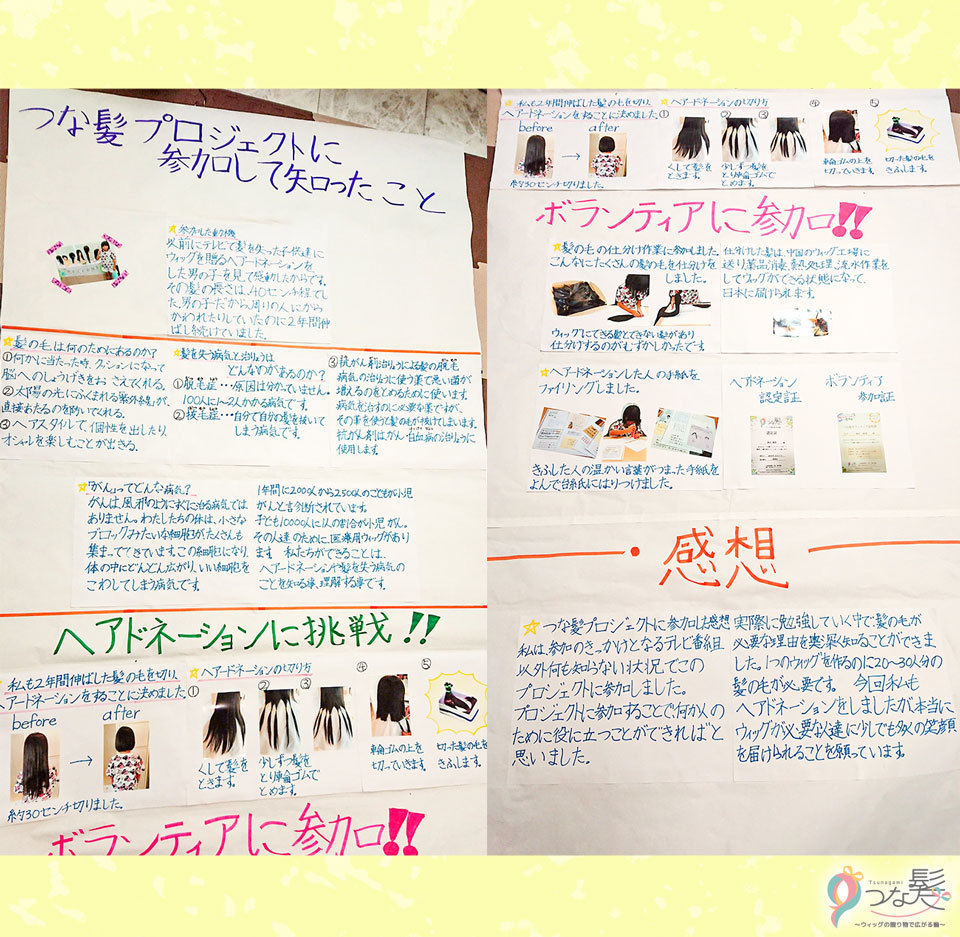 つな髪プロジェクトに
参加して知ったこと
☆参加した動機
以前にテレビで髪を失った子供達に
ウィッグを贈るヘアードネーションを
した男の子を見て感動したからです。
その髪の長さは、40センチ程でし
た。男の子だから、周りの人にから
かわれたりしていたのに2年間伸
ばし続けていました。
☆髪の毛は何のためにあるのか?
①何かに当たった時、クッションになって
脳へのしょうげきをおさえてくれる。
②太陽の光にふくまれる紫外線が、
直接あたるのを防いでくれる。
③ヘアスタイルで、個性を出したり、
オシャレを楽しむことが出きる。
☆髪を失う病気と治りょうは
どんなのがあるのか?
①脱毛症…原因は分かっていません。
100人に1~2人かかる病気です。
②抜毛症…自分で自分の髪を抜いて
しまう病気です。
③抗がん剤治りょうによる髪の脱毛
病気の治りょうに使う薬で悪い菌が
増えるのをとめるために使います。
病気を治すのに必要な薬ですが、
その薬を使うと髪の毛が抜けてしまいます。
抗がん剤はがん・白血病の治りょうに
使用します。
☆「がん」ってどんな病気?
がんは、風邪のようにすぐに治る病気では
ありません。わたしたちの体は、小さな
ブロックみたいな細胞がたくさんも
集まってできています。この細胞になり、
体の中にどんどん広がり、いい細胞を
こわしてしまう病気です。
1年間に2000人から2500人のこどもが小児
がんと言診断されています。
子ども10000人に1人の割合が小児がん。
その人達のために、医療用ウィッグがあり
ます 私たちができることは、
ヘアードネーションや髪を失う病気の
ことを知る事、理解する事です。
ヘアドネーションに挑戦!!
私も2年間伸ばした髪の毛を切り、
ヘアードネーションをすることに決めました。
before → after
約30センチ切りました。
☆ヘアードネーションの切り方
① ② ③ ④ ⑤
くしで髪を
ときます。
少しずつ髪を
とり輪ゴムで
とめます。
輪ゴムの上を
切っていきます。
切った髪の毛を
きふします。
ボランティアに参加!!
☆私も2年間伸ばした髪の毛を切り、
ヘアードネーションをすることに決めました。
before → after
約30センチ切りました。
☆ヘアードネーションの切り方
① ② ③ ④ ⑤
くしで髪を
ときます。
少しずつ髪を
とり輪ゴムで
とめます。
輪ゴムの上を
切っていきます。
切った髪の毛を
きふします。
ボランティアに参加!!
☆髪の毛の仕分け作業に参加しました。
こんなにたくさんの髪の毛を仕分けを
しました。
ウィッグにできる髪とできない髪があり
仕分けするのがむずかしかったです
仕分けした髪は、中国のウィッグ工場に
送り薬品消毒、熱処理、流水作業を
してウィッグができる状態になって、
日本に届けられます。
☆ヘアドネーションした人の手紙を
ファイリングしました。
きふした人の温かい言葉がつまった手紙を
よんで、台紙にはりつけました。
ヘアドネーション
認定証
ボランティア
参加証
・感想
☆つな髪プロジェクトに参加した感想
私は、参加のきっかけとなるテレビ番組
以外何も知らない状況でこの
プロジェクトに参加しました。
プロジェクトに参加することで何か人の
ために役に立つことができればと
思いました。
実際に勉強していく中で髪の毛が
必要な理由を奥深く知ることができま
した。1つのウィッグを作るのに20~30人分の
髪の毛が必要です。 今回私も
ヘアドネーションをしましたが、本当に
ウィッグが必要な人達に少しでも多くの笑顔
を届けられることを願っています。
Tsunagami
つな髪
~ウィッグの贈り物で広がる輪~